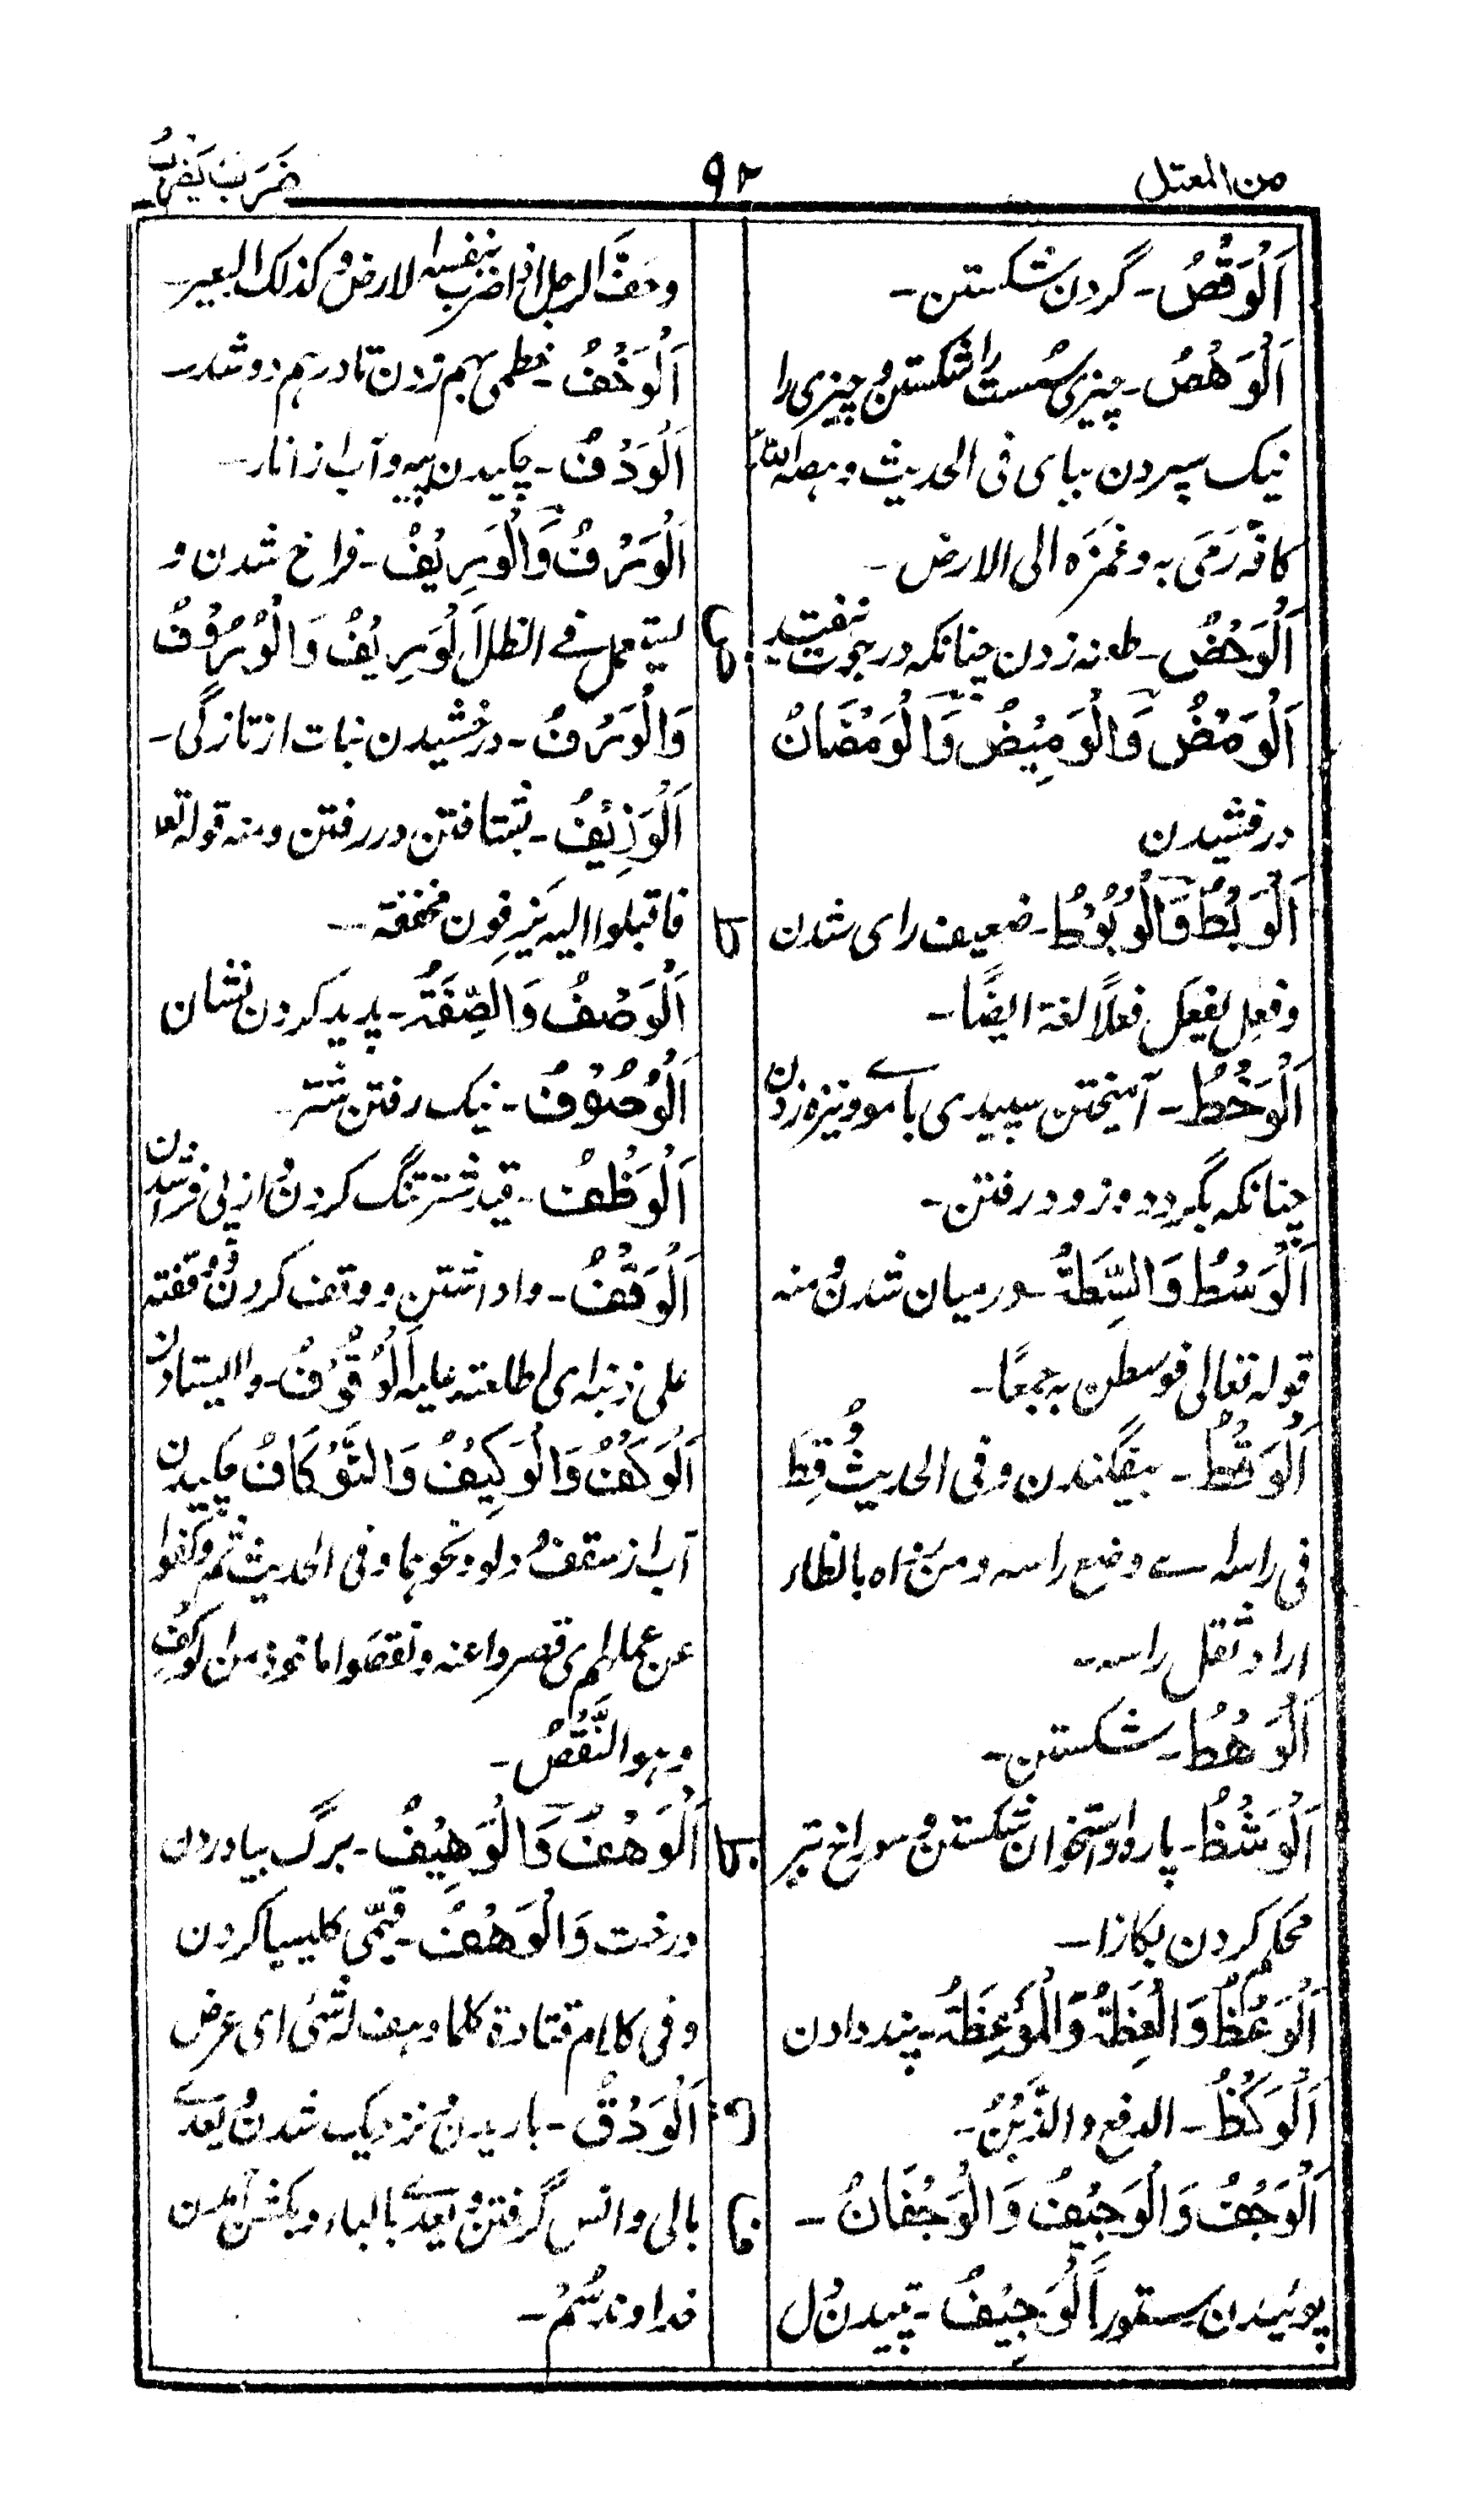 من المعتل
۹۲
ضَرَبَ يَضْرِبُ
اَلْوَقْصُ۔ گردن شکستن۔
اَلْوَهْصُ۔ چیزی سست را شکستن و چیزی را
نیک سپردن بپای فی الحدیث وہصہ اللّٰہ
کانہ رَمَی بہ و غمزَہ الی الارض۔
اَلْوَخْضُ۔ طعنہ زدن چنانکہ در جوف نیفتد
ض
اَلْوَمْضُ وَالْوَمِيْضُ وَالْوَمْضَانُ
درفشیدن
اَلْوَبْطُ وَالْوُبُوْطُ۔ ضعیف رای شدن
ط
وفعِل یفعَل فعلاً لغۃ ایضًا۔
اَلْوَخْطُ۔ آمیختن سپیدی با موے و نیزہ زدن
چنانکہ بگذرد و زود رفتن۔
اَلْوَسْطُ وَالسِّطَةُ۔ درمیان شدن و منہ
قولہ تعالی فوسطن بہ جمعًا۔
اَلْوَقْطُ۔ بیفگندن و فی الحدیث وُقِطَ
فی راسہ اے وضع راسہ و من رواہ بالظاء
اراد ثقل راسہ۔
اَلْوَهْطُ۔ شکستن۔
اَلْوَشْظُ۔ پارہ از استخوان شکستن و سوراخ تبر
ظ
محکم کردن بکاز۔
اَلْوَعْظُ وَالْعِظَةُ وَالْمَوْعِظَةُ۔ پند دادن
اَلْوَكْظُ۔ الدفع والزَّبْنُ۔
اَلْوَجْفُ وَالْوَجِيْفُ وَالْوَجْفَانُ۔
ف
پوئیدن ستور اَلْوَجِيْفُ۔ تپیدن دل
وحفَ الرجل اذا ضرب بنفسہ الارض و کذلک البعیر۔
اَلْوَخْفُ۔ خطمی بہم زدن تا درہم دوشد۔
اَلْوَدْفُ۔ چکیدن پیہ و آب از انار۔
اَلْوَرْفُ وَالْوَرِيْفُ۔ فراخ شدن و
یستعمل فے الظل اَلْوَرِيْفُ وَالْوُرُوْفُ
وَالْوَرْفُ۔ درخشیدن نبات از تازگی۔
اَلْوَزِيْفُ۔ بشتافتن در رفتن و منہ قولہ تعا
فاقبلوا الیہ یَزِفون مخففۃ۔
اَلْوَصْفُ وَالصِّفَةُ۔ پدید کردن نشان
اَلْوُصُوْفُ۔ نیک رفتن شتر۔
اَلْوَظْفُ۔ قید شتر تنگ کردن و از پی فرا شدن
اَلْوَقْفُ۔ وا داشتن و وقف کردن و وقفتہ
علی ذنبہ ای اطلعتہ علیہ اَلْوُقُوْفُ۔ وا ایستادن
اَلْوَكْفُ وَالْوَكِيْفُ وَالتَّوْكَافُ چکیدن
آب از سقف و دلو و نحوہا و فی الحدیث ثم وکفوا
عن علمہم ای قصروا عنہ و نقصوا ماخوذ من الوکف
و ہو النَّقْصُ۔
اَلْوَهْفُ وَالْوَهِيْفُ۔ برگ بیاوردن
درخت وَالْوَهْفُ۔ قیّمی کلیسیا کردن
و فی کلام قتادۃ کلما وہف لہ شئ ای عرض
اَلْوَدْقُ۔ باریدن و نزدیک شدن و یعدے
ق
بالی و انس گرفتن و یعدے بالباء و بکشن آمدن
خداوند سُم۔